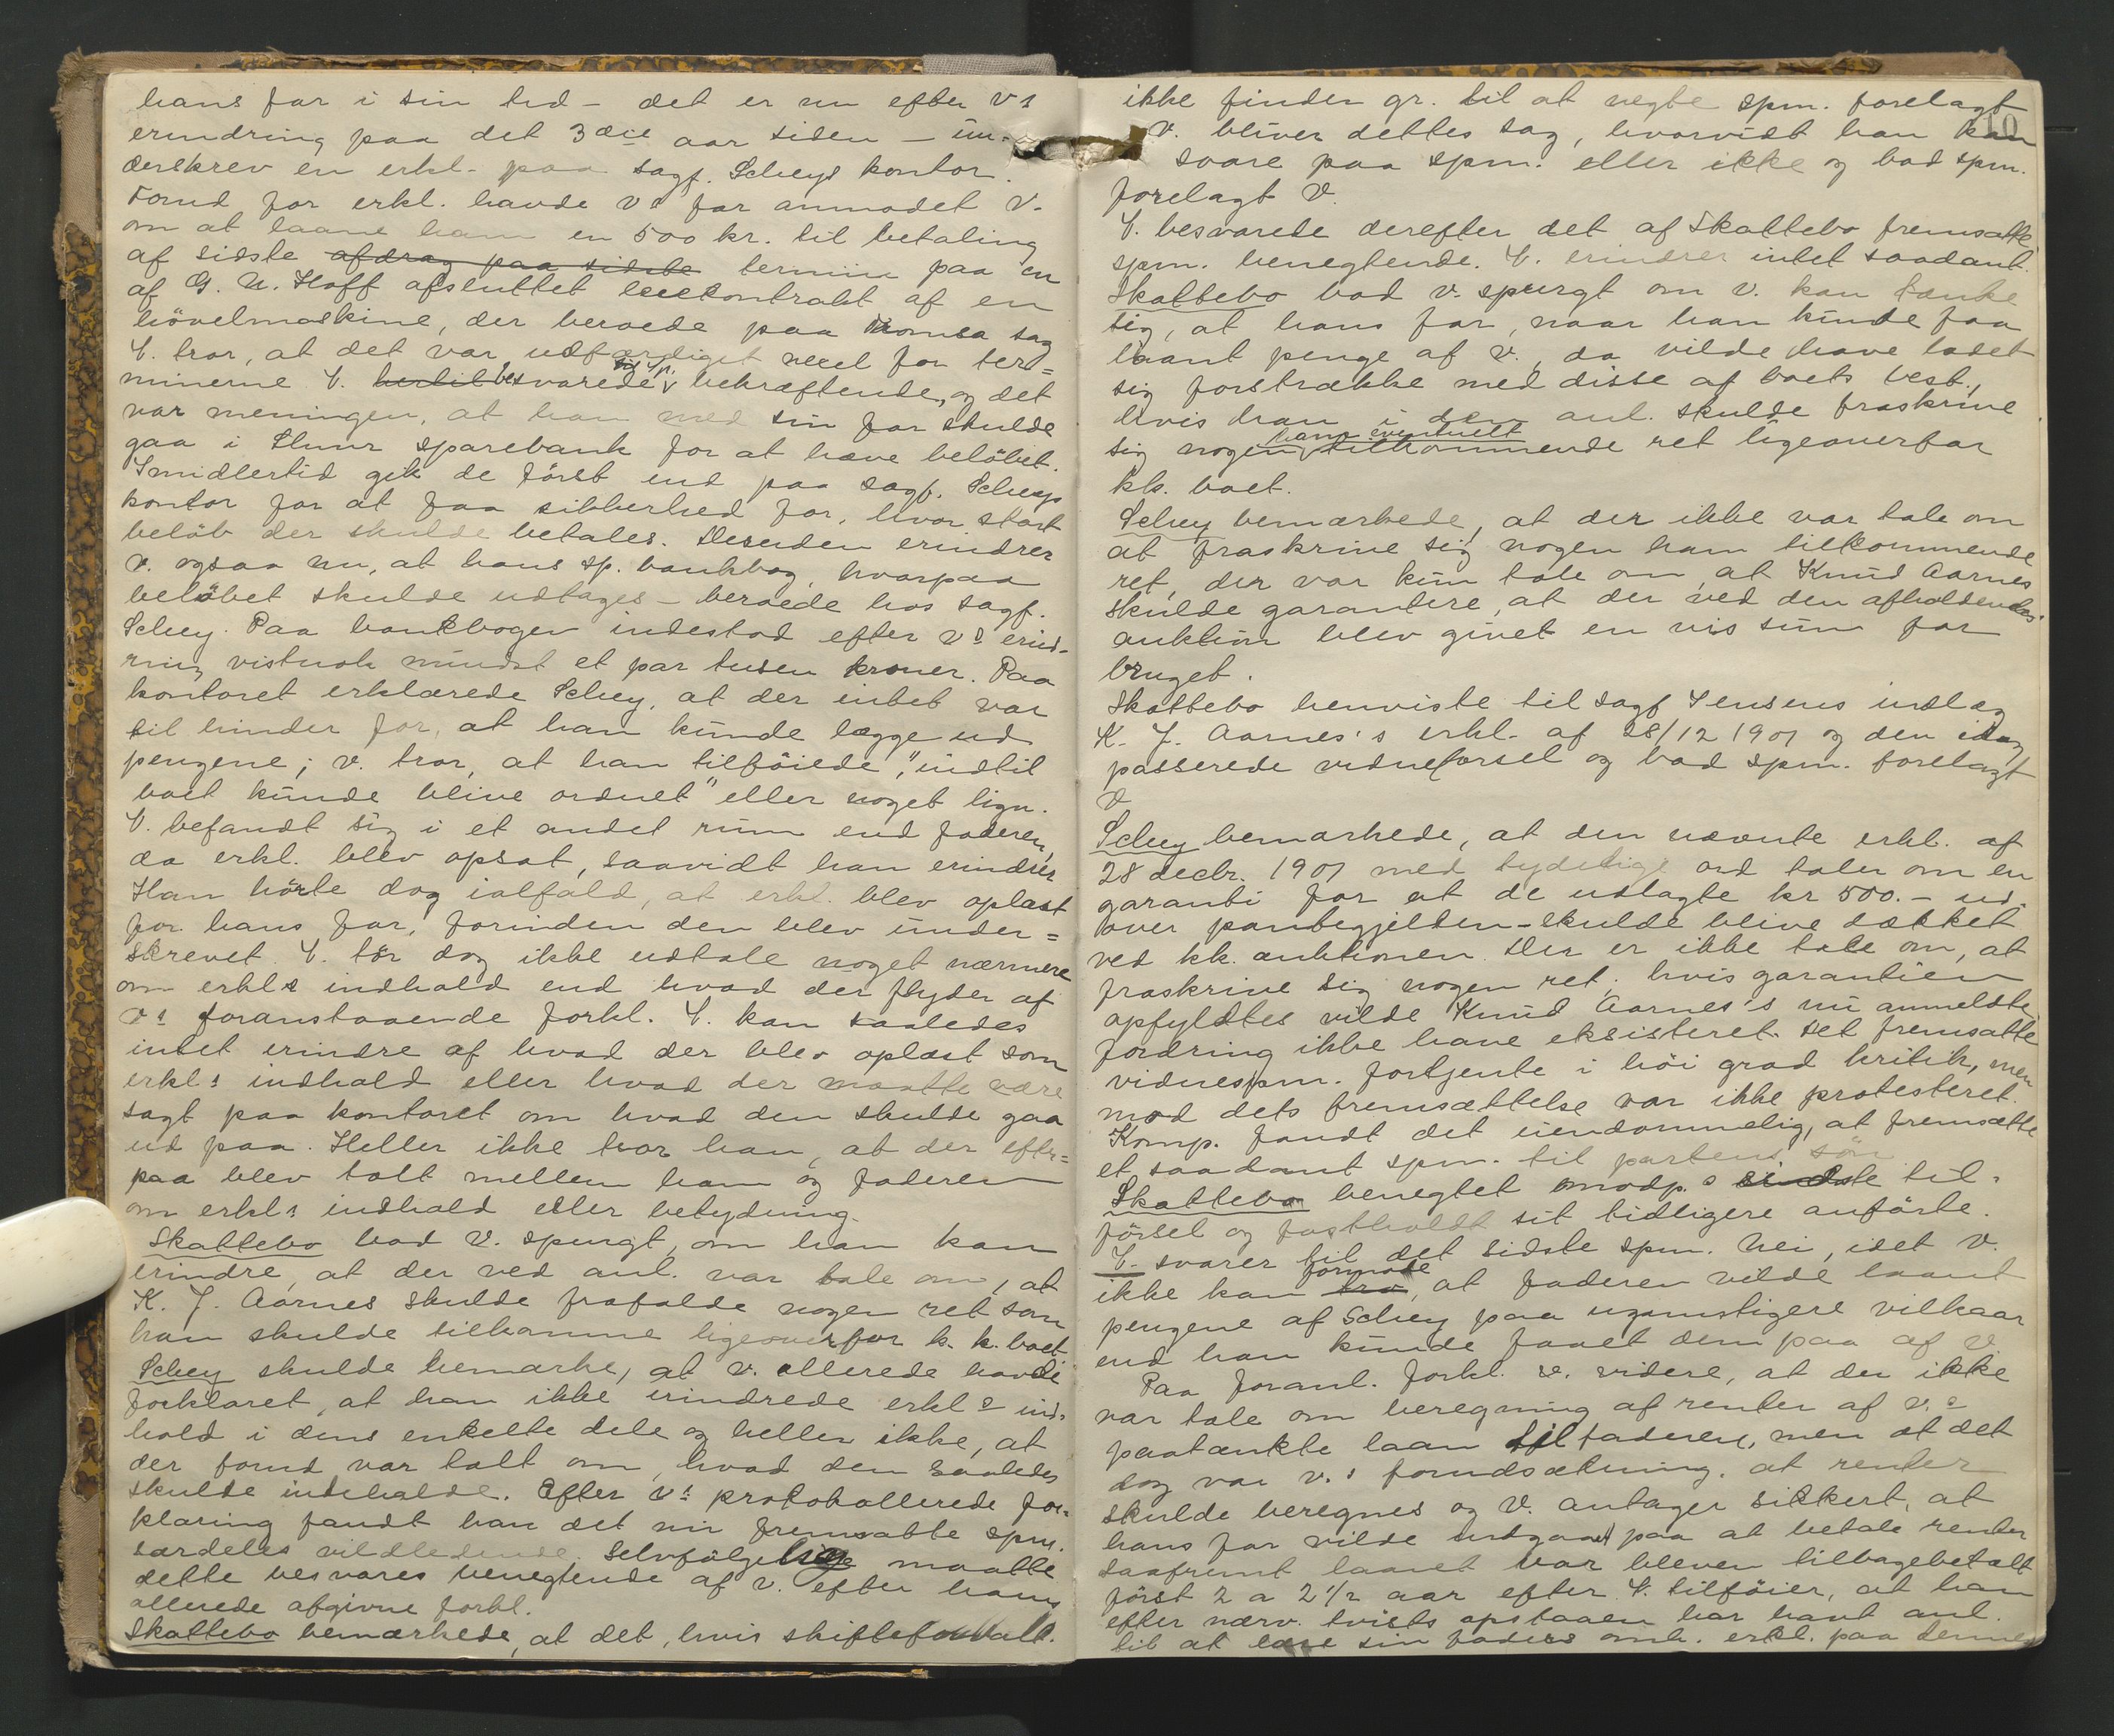 hans far i sin tid – det er nu efter vs
erindring paa det 3die aar siden – un-
derskrev en erkl. paa sagf. Scheys kontor.
Forud for erkl. havde vs far anmodet V.
om at laane ham en 500 kr. til betaling
af sidste afdrag paa sidste termin paa en
af G. N. Hoff afsluttet leiekontrakt af en
hövelmaskine, der beroede paa Tromsa sag
V. tror, at det var udfærdiget vexel for ter=
minerne V. hertil besvarede sp. bekræftende, og det
var meningen, at han med sin far skulde
gaa i sparebank for at hæve belöbet.
Imidlertid gik de först ind paa sagf. Scheys
kontor for at faa sikkerhed for, hvor stort
belöb der skulde betales. Desuden erindrer
v. ogsaa nu, at hans sp. bankbog, hvorpaa
belöbet skulde udtages – beroede hos sagf.
Schey. Paa bankbogen indestod efter vs erind-
ring vistnok mindst et par tusen kroner. Paa
kontoret erklærede Schey, at der intet var
til hinder for, at han kunde lægge ud
pengene; v. tror, at han tilföiede, "indtil
boet kunde blive ordnet" eller noget lign.
V. befandt sig i et andet rum end faderen,
da erkl. blev opsat, saavidt han erindrer
Han hörte dog ialfald, at erkl. blev oplæst
for hans far, forinden den blev under=
skrevet. V. tör dog ikke udtale noget nærmere
om erkls indhold end hvad der flyder af
vs foranstaaende forkl. V. kan saaledes
intet erindre af hvad der blev oplæst som
erkls indhold eller hvad der maatte være
sagt paa kontoret om hvad den skulde gaa
ud paa. Heller ikke tror han, at der efter=
paa blev talt mellem ham og faderen
om erkls indhold eller betydning.
Skattebo bad V. spurgt, om han kan
erindre, at der ved anl. var tale om, at
K. J. Aarnes skulde frafalde nogen ret som
han skulde tilkomme ligeoverfor k. k. boet
Schey skulde bemærke, at v. allerede havde
forklaret, at han ikke erindrede erkls ind-
hold i dens enkelte dele og heller ikke, at
der forud var talt om, hvad den saaledes
skulde indeholde. Efter vs protokollerede for=
klaring fandt han det nu fremsatte spm.
særdeles vildledende. Selvfölgelig maatte
dette besvares benegtende af v. efter hans
allerede afgivne forkl.
Skattebo bemærkede, at det, hvis skifteforvalt.
10
ikke finder gr. til at negte spm. forelagt
V. bliver dettes sag, hvorvidt han kan
svare paa spm. eller ikke og bad spm.
forelagt V.
V. besvarede derefter det af Skattebo fremsatte
spm. benegtende. V. erindrer intet saadant.
Skattebo bad v. spurgt om v. kan tænke
sig, at hans far, naar han kunde faa
laant penge af v., da vilde have ladet
sig forstrække med disse af boets best.,
hvis han i den anl. skulde fraskrive
sig nogen ham eventuelt tilkommende ret ligeoverfor
kk. boet.
Schey bemærkede, at der ikke var tale om
at fraskrive sig nogen ham tilkommende
ret, der var kun tale om, at Knud Aarnes
skulde garantere, at der ved den afholdendes
auktion blev givet en vis sum for
bruget.
Skattebo henviste til sagf Jensens indlæg
K. J. Aarnes's erkl. af 28/12 1901 og den idag
passerede vidneförsel og bad spm. forelagt
V
Schey bemærkede, at den nævnte erkl. af
28 decbr. 1901 med tydelige ord taler om en
garanti for at de udlagte kr 500.– ud
over pantegjelden – skulde blive dækket
ved kk. auktionen. Der er ikke tale om, at
fraskrive sig nogen ret. hvis garantien
opfyldtes vilde Knud Aarnes's nu anmeldte
fordring ikke have eksisteret. Det fremsatte
vidnespm. fortjente i höi grad kritik, men
mod dets fremsættelse var ikke protesteret.
Komp. fandt det eiendommelig, at fremsætte
et saadant spm. til partens sön
Skattebo benegtet modp.s sidste til-
försel og fastholdt sit tidligere anförte.
V. svarer til det sidste spm. Nei, idet V.
ikke kan tro formode, at faderen vilde laant
pengene af Schey paa ugunstigere vilkaar
end han kunde faaet dem paa af V.
Paa foranl. forkl. v. videre, at der ikke
var tale om beregning af renter af v.s
paatænkte laan til faderen, men at det
dog var v.s forudsætning, at renter
skulde beregnes og V. antager sikkert, at
hans far vilde indgaaet paa at betale renter
saafremt laanet var bleven tilbagebetalt
först 2 a 2 1/2 aar efter. V. tilföier, at han
efter nærv. tvists opstaaen har havt anl.
til at læse sin faders omh. erkl. paa dennes